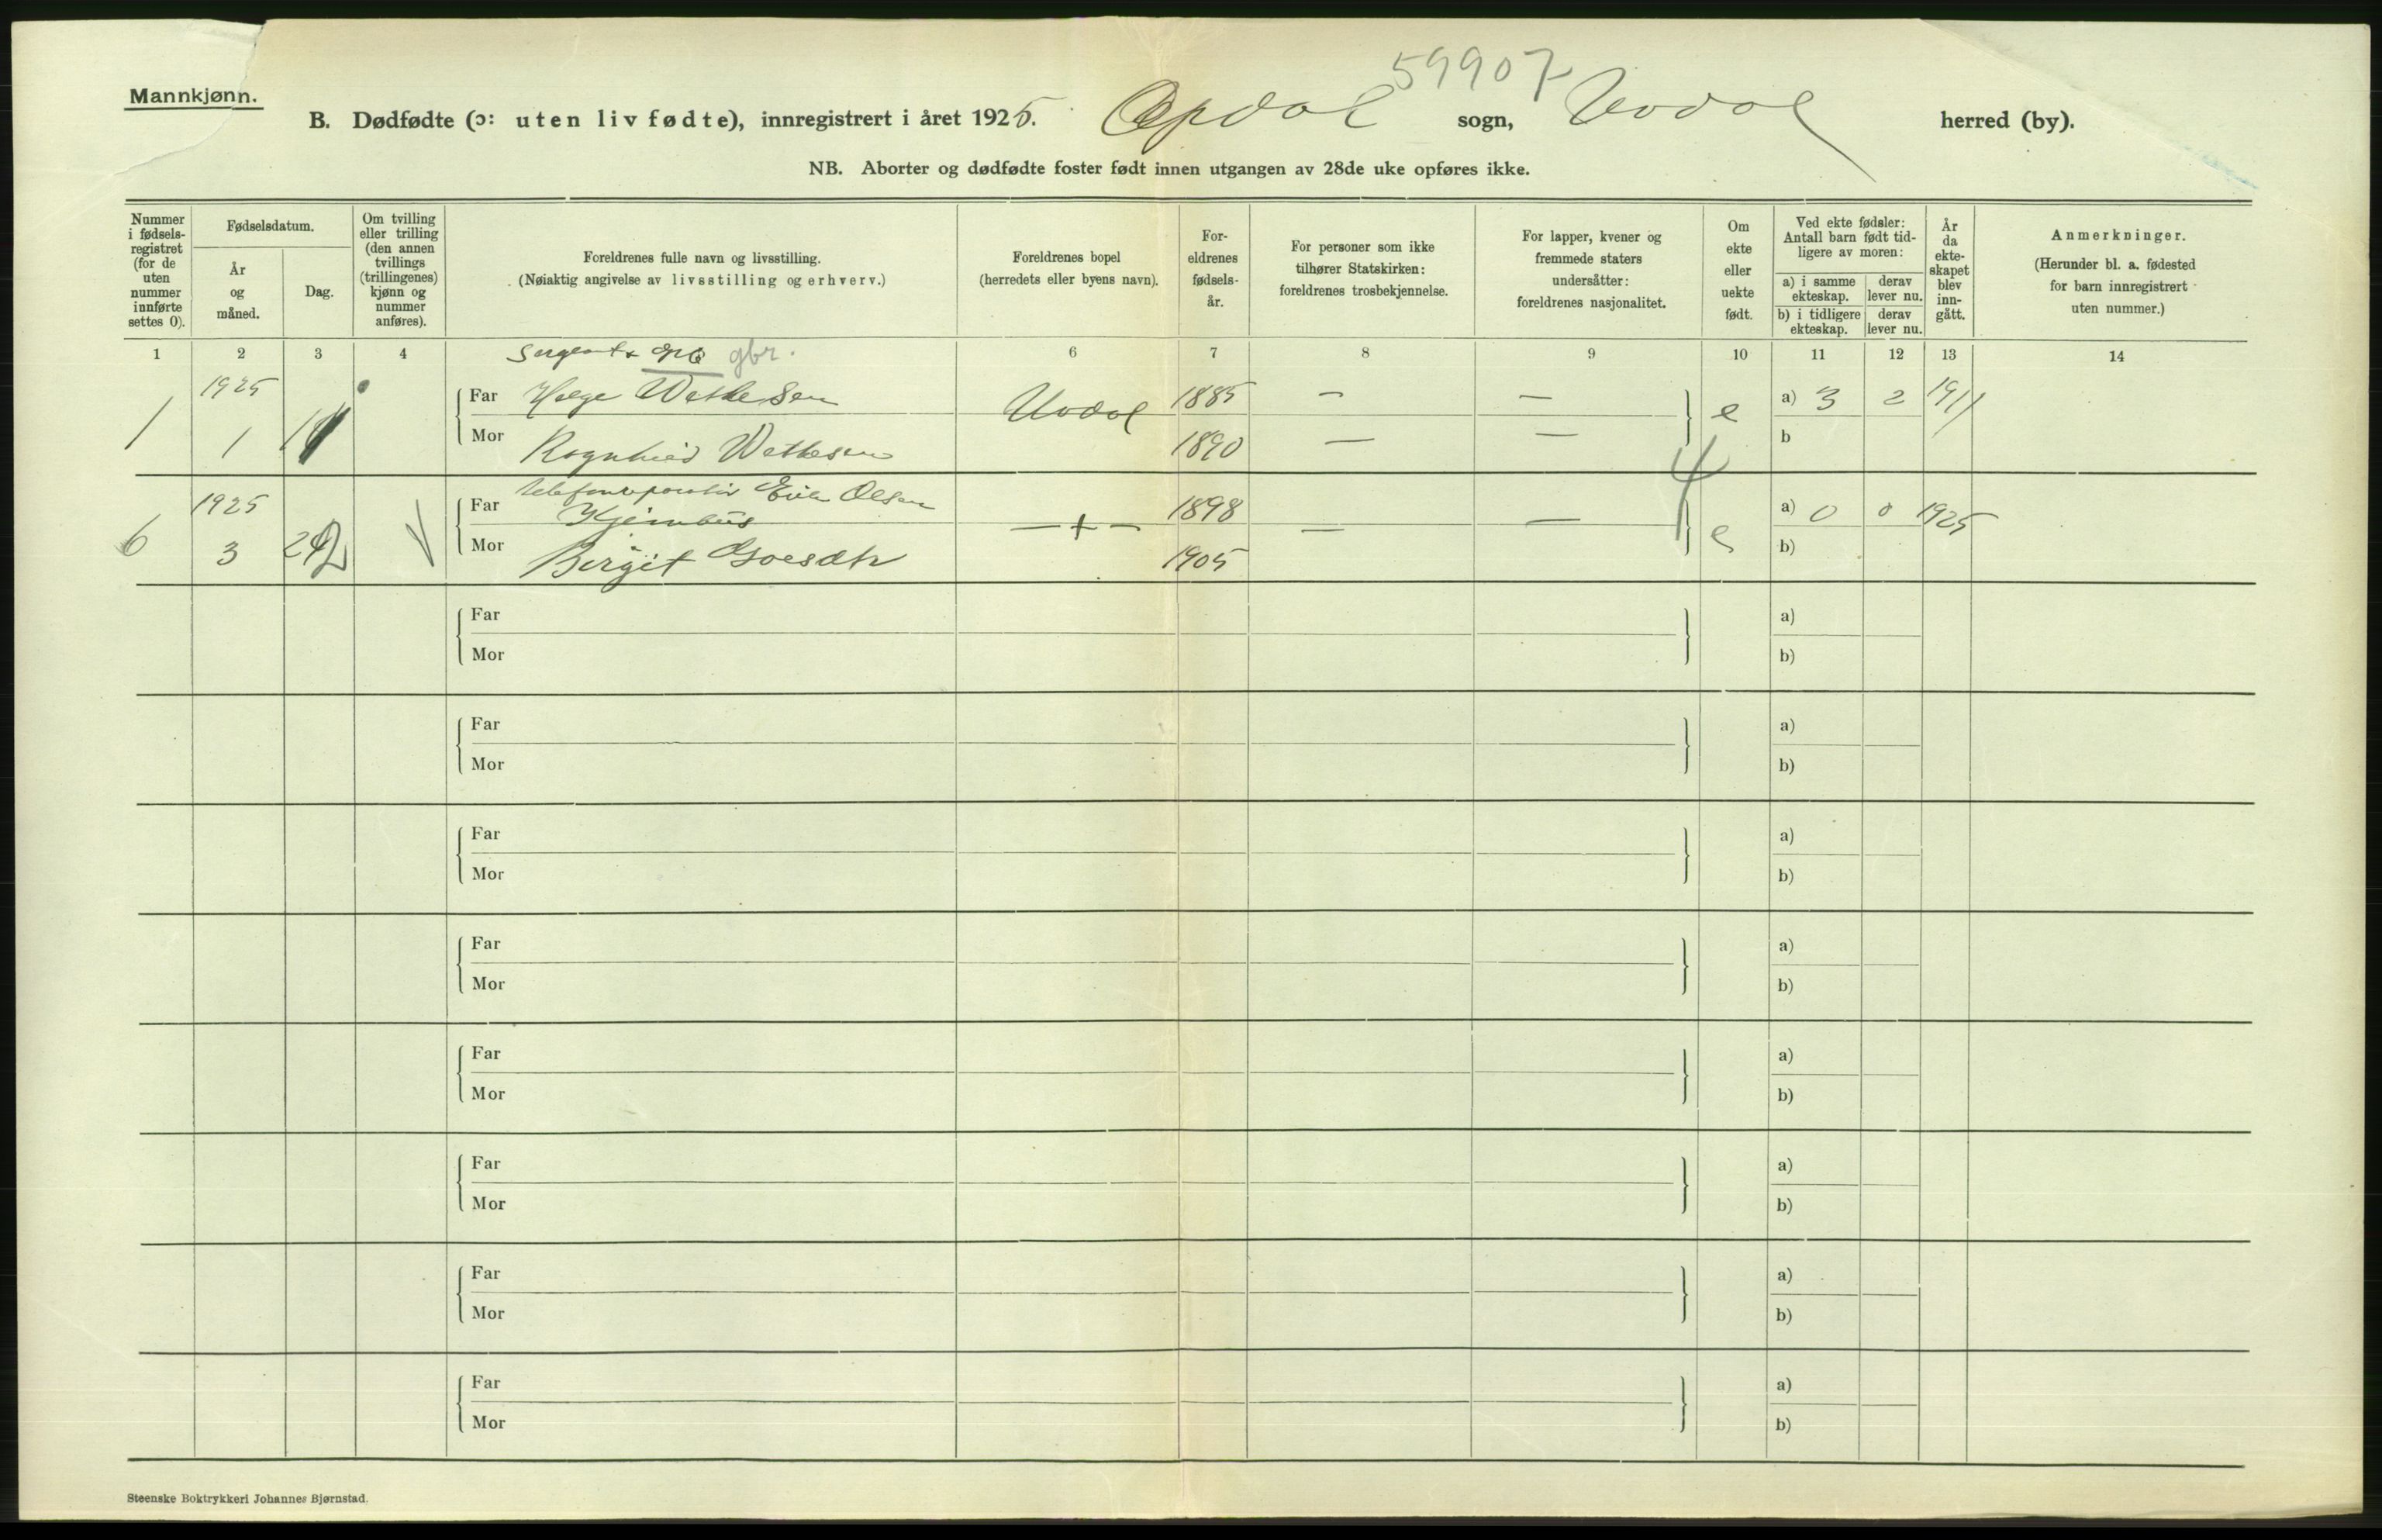 59907
Mannkjønn.
B. Dødfødte (ɔ: uten liv fødte), innregistrert i året 1925. Opdal sogn, Uvdal herred (by).
NB. Aborter og dødfødte foster født innen utgangen av 28de uke opføres ikke.
Nummer i fødsels-registret (for de uten nummer innførte settes 0).
Fødselsdatum.
År og måned.
Dag.
Om tvilling eller trilling (den annen tvillings (trillingenes) kjønn og nummer anføres).
Foreldrenes fulle navn og livsstilling.
(Nøiaktig angivelse av livsstilling og erhverv.)
Foreldrenes bopel
(herredets eller byens navn).
For-eldrenes fødsels-år.
For personer som ikke tilhører Statskirken: foreldrenes trosbekjennelse.
For lapper, kvener og fremmede staters undersåtter: foreldrenes nasjonalitet.
Om ekte eller uekte født.
Ved ekte fødsler: Antall barn født tid-ligere av moren:
a) i samme ekteskap.
derav lever nu.
b) i tidligere ekteskap.
derav lever nu.
År da ekte-skapet blev inn-gått.
Anmerkninger.
(Herunder bl. a. fødested for barn innregistrert uten nummer.)
1 2 3 4 6 7 8 9 10 11 12 13 14
gbr.
1925
Far Helge Wethesen Uvdal 1885 — — a) 3 2 1911
1 1 e
Mor Ragnhild Wethesen 1890 — — b
Olsen
1925 Far 1898 — a) 0 0 1925
6 3 — + — — e
Mor Birgit 1905 b)
4
Far a)
Mor b)
Far a)
Mor b)
Far a)
Mor b)
Far a)
Mor b)
Far a)
Mor b)
Far a)
Mor b)
Far a)
Mor b)
Far a)
Mor b)
Steenske Boktrykkeri Johannes Bjørnstad.